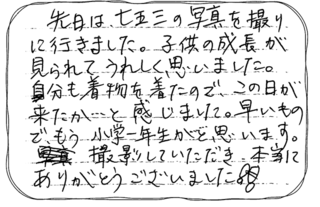 先日は七五三の写真を撮り
に行きました。子供の成長が
見られてうれしく思いました。
自分も着物を着たので、この日が
来たか…と感じました。早いもの
でもう小学一年生かと思います。
撮影していただき、本当に
ありがとうございました